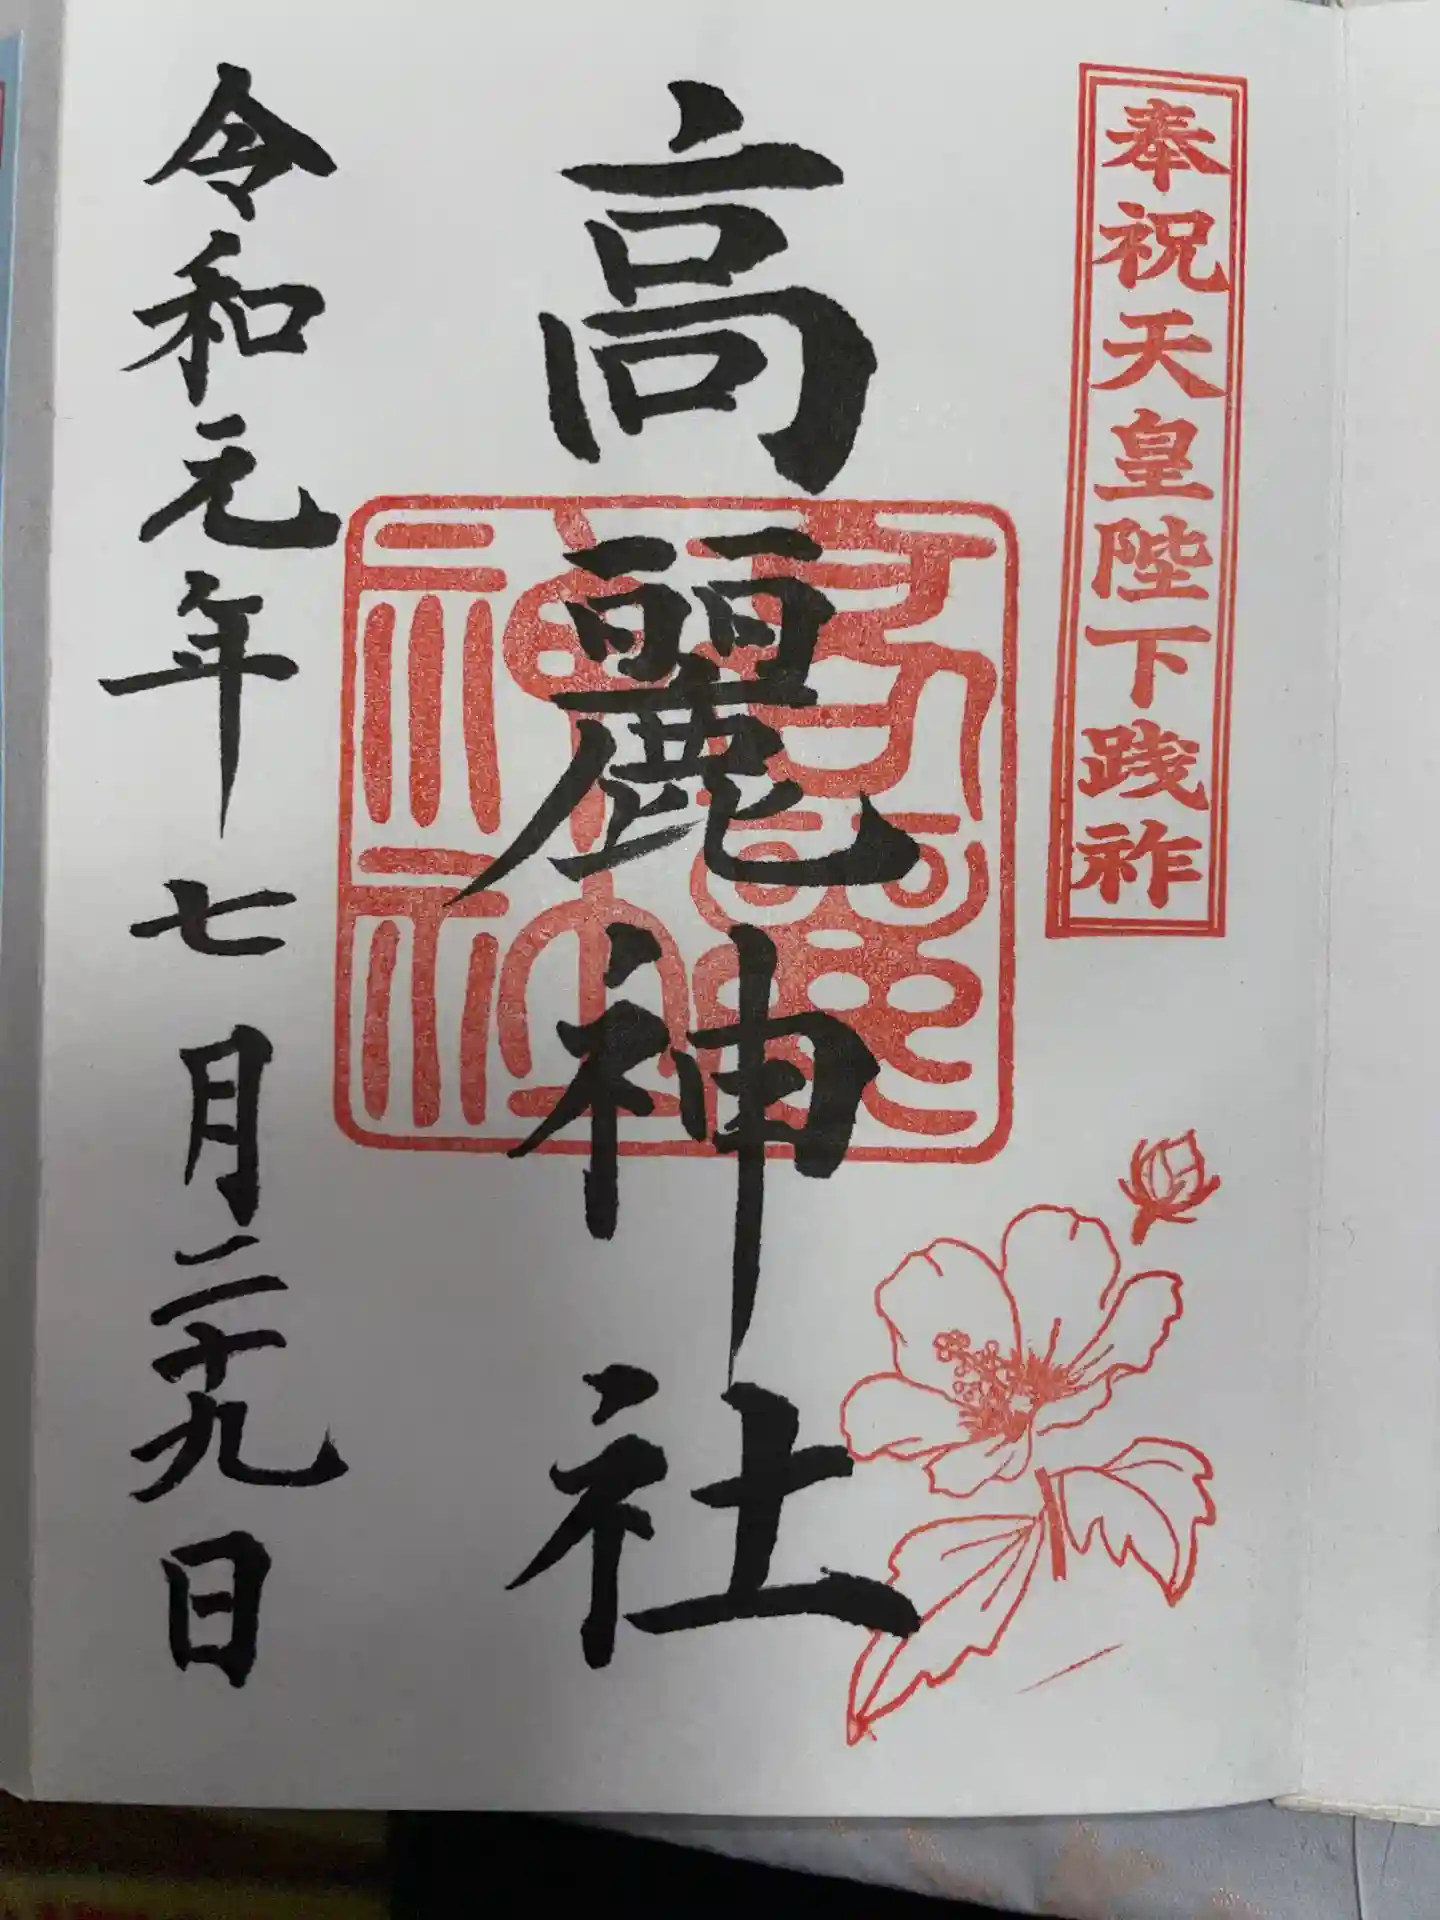 奉祝天皇陛下践祚
高麗神社
令和元年七月二十九日